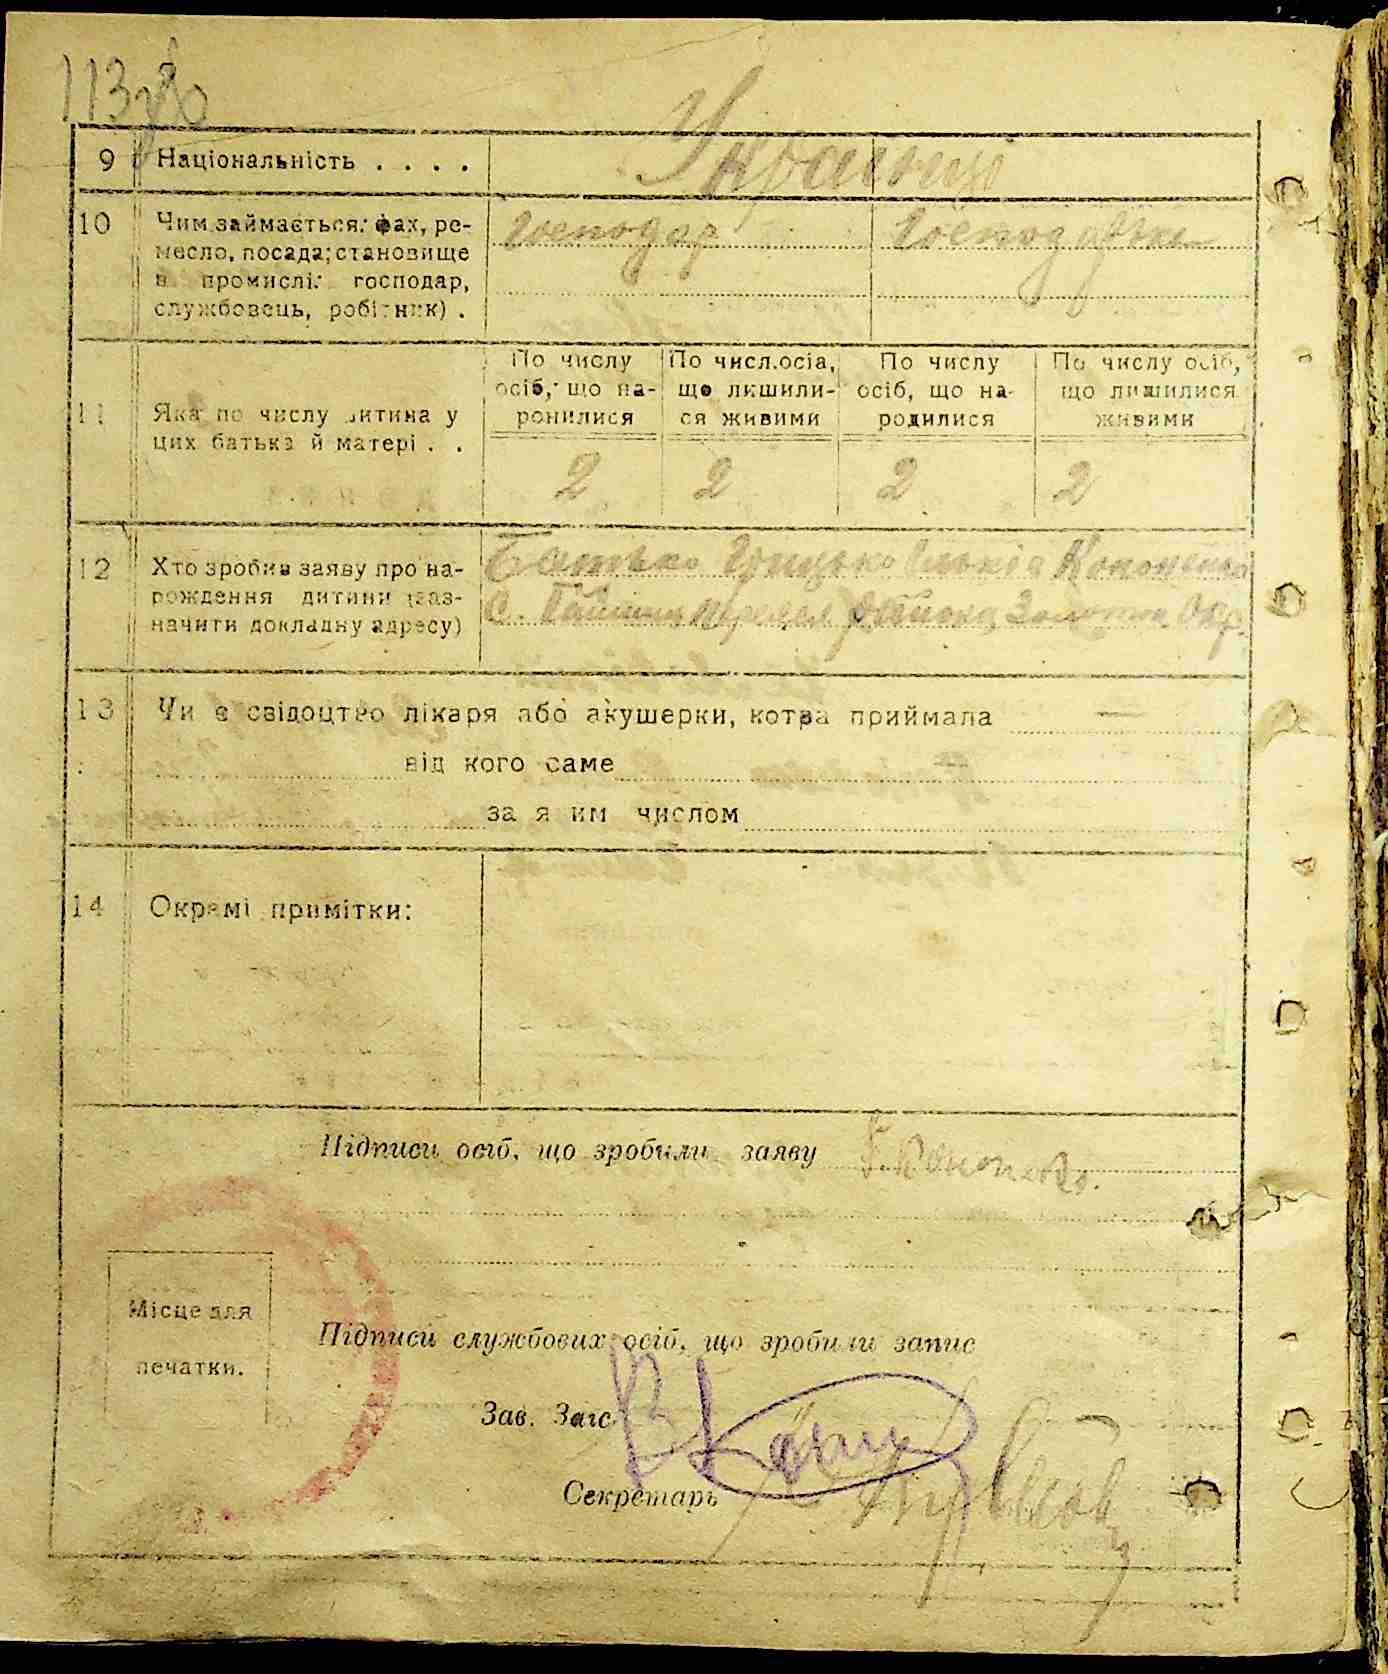 113
9 Національність . . . . Українці
10 Чим займається: фах, ре-
месло, посада; становище
в промислі: господар,
службовець, робітник) .
Господар Господарка
11 Яка по числу дитина у
цих батька й матері . .
По числу осіб, що на-ронилися
По числ.осіа, що лишили-ся живими
По числу осіб, що на-родилися
По числу осіб, що лишилися живими
2 2 2 2
12 Хто зробив заяву про на-
рождення дитини (заз-
начити докладну адресу)
Батько Грицько Кононенко
С. района Окр.
13 Чи є свідоцтво лікаря або акушерки, котра приймала —
від кого саме
за яким числом
14 Окремі примітки:
Підписи осіб, що зробили заяву Г. Кононенко.
Місце для
печатки.
Підписи службових осіб, що зробили запис
Зав. Загс
Секретарь